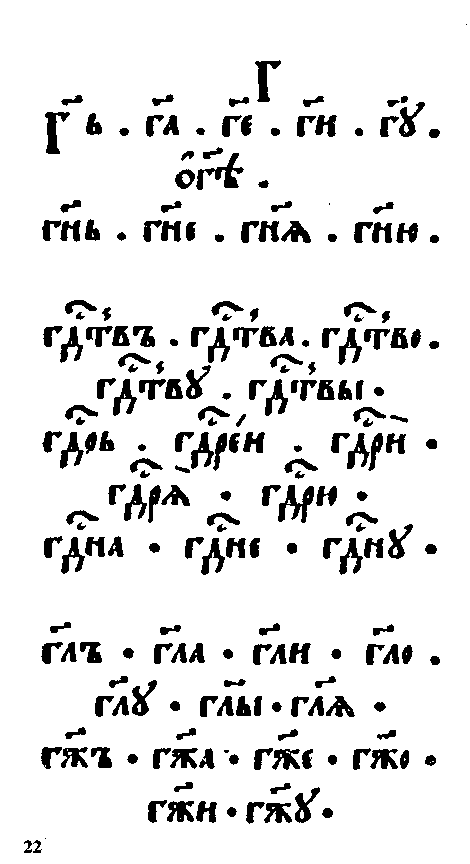 Г
Г҃ь . г҃а . г҃е . г҃и . г҃ꙋ .
ѻ҆г҃ѣ .
г҃нь . г҃не . г҃нѧ . г҃ню .
гдⷭ҇твъ . гдⷭ҇тва . гдⷭ҇тво .
гдⷭ҇твꙋ . гдⷭ҇твы .
гдⷭ҇рь . гдⷭ҇ре́й . гдⷭ҇рӣ .
гдⷭ҇рѧ̄ . гдⷭ҇рю .
гдⷭ҇на . гдⷭ҇не . гдⷭ҇нꙋ .
г҃лъ . г҃ла . г҃ли . г҃ло .
г҃лꙋ . г҃лы . г҃лѧ .
г҃жъ . г҃жа . г҃же . г҃жо .
г҃жи . г҃жꙋ .
22